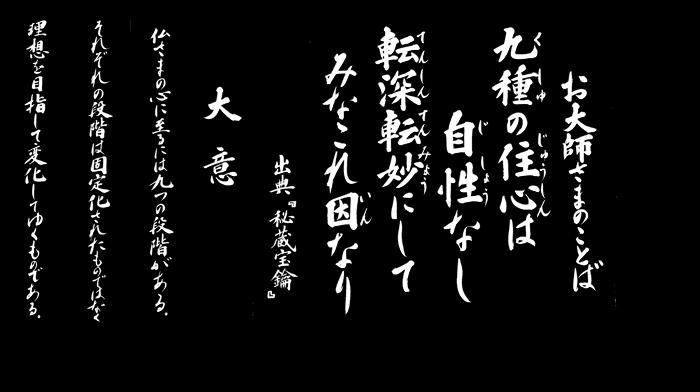 お大師さまのことば
九種の住心は
くしゅ じゅうしん
自性なし
じしょう
転深転妙にして
てんしんてんみょう
みなこれ因なり
いん
出典『秘蔵宝鑰』
大意
仏さまの心に至るには九つの段階がある。
それぞれの段階は固定化されたものではなく
理想を目指して変化してゆくものである。